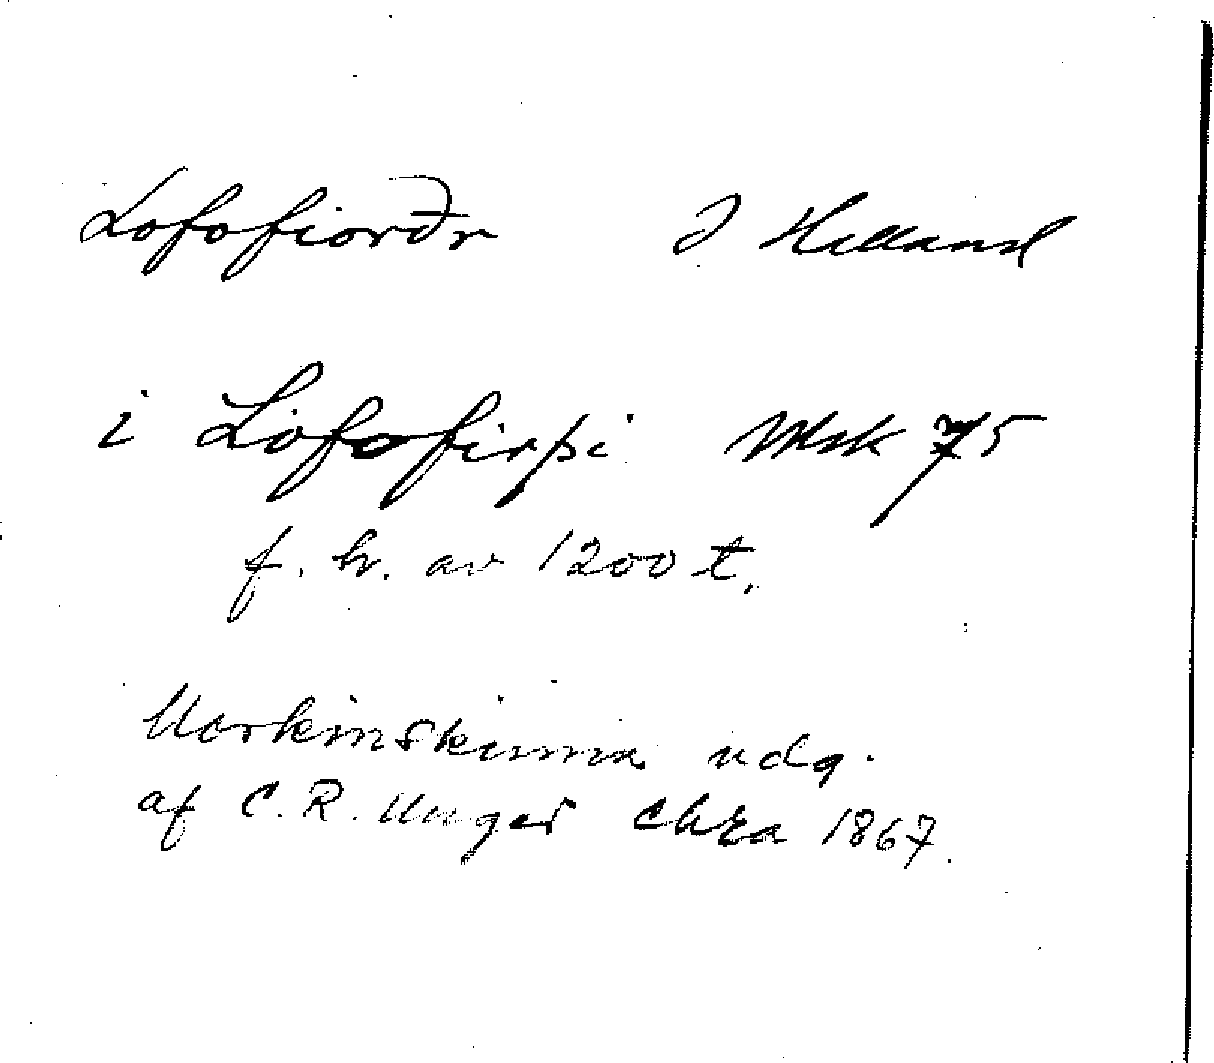 Lofofiorðr I Helland
i Lofofirþi Msk 75
f. h. av 1200 t.
Morkinskinna udg.
af C. R. Unger Chra 1867.